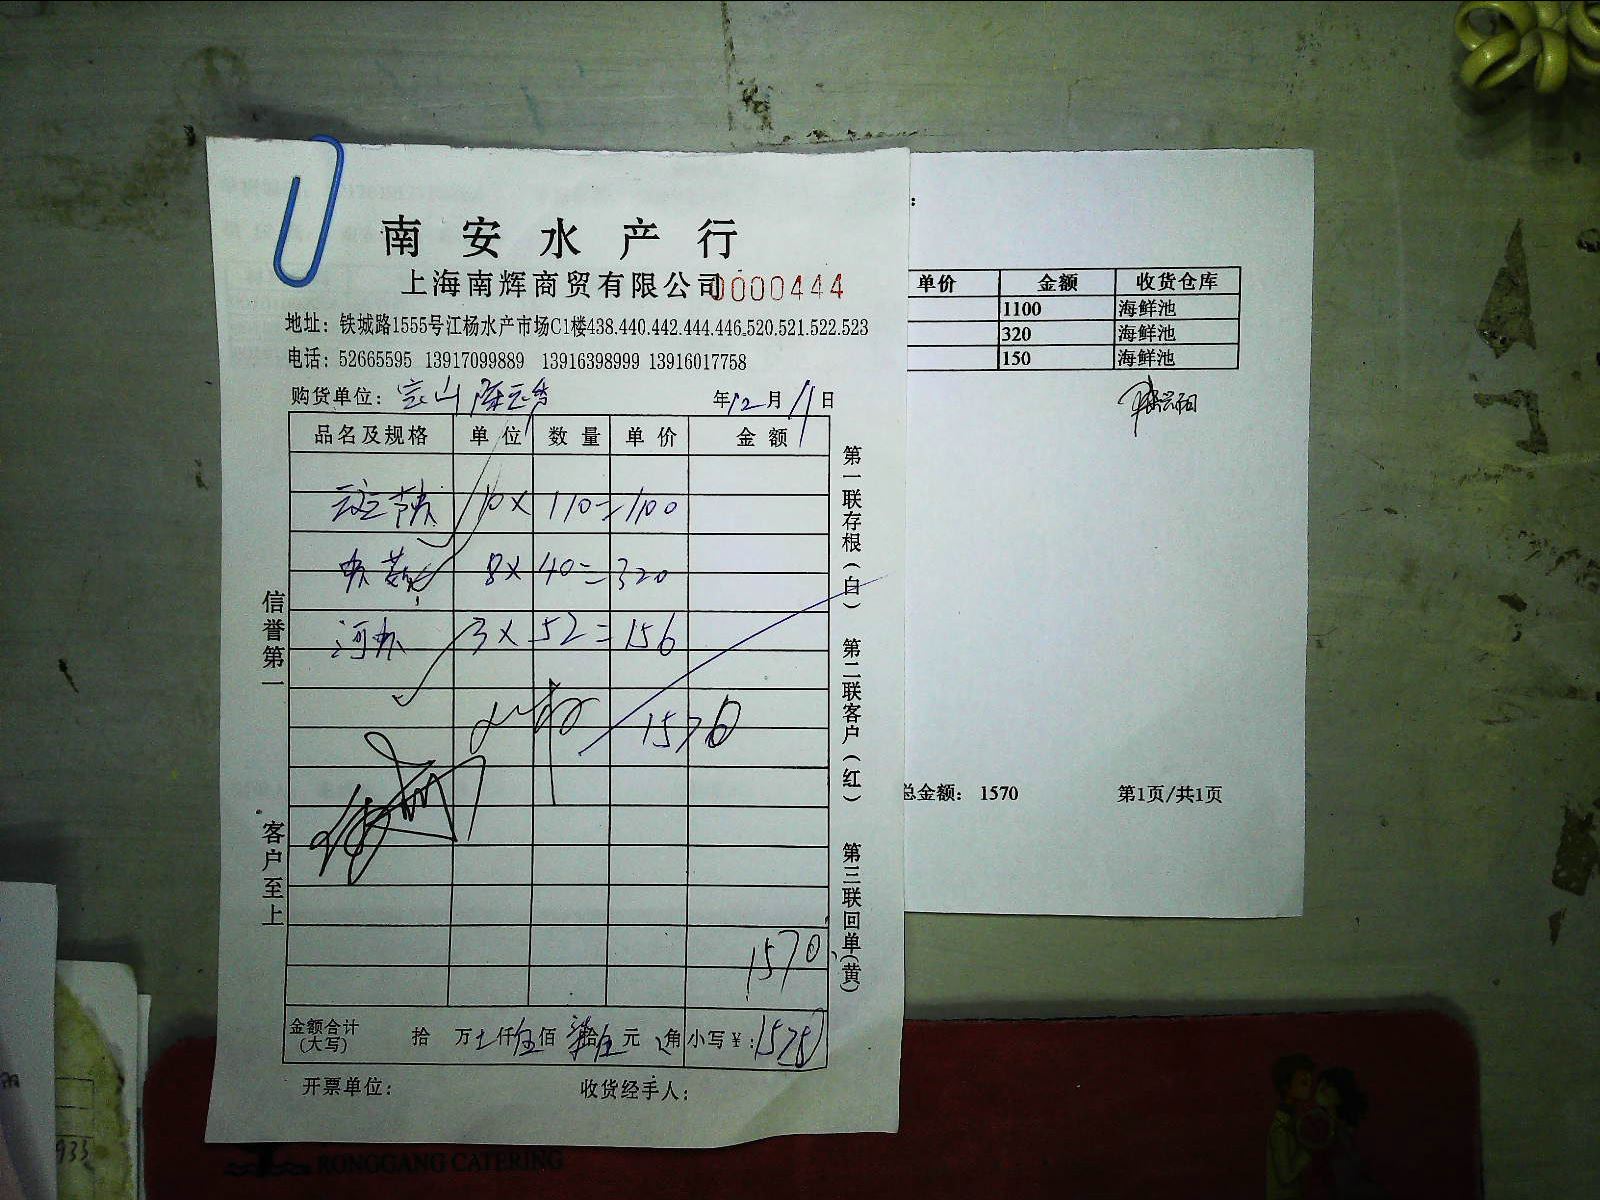 南安水产行
上海南辉商贸有限公司 0000444
地址：铁城路1555号江杨水产市场C1楼438.440.442.444.446.520.521.522.523
电话：52665595 13917099889 13916398999 13916017758
购货单位： 年12月11日
品名及规格 单位 数量 单价 金额
10× 110=1100
8× 40=320
河虾 3× 52=156
1576
1570
金额合计(大写) 拾 万 仟伍佰 拾 元 角 小写￥：
开票单位： 收货经手人：
信誉第一 客户至上
第一联存根(白) 第二联客户(红) 第三联回单(黄)
单价 金额 收货仓库
1100 海鲜池
320 海鲜池
150 海鲜池
总金额： 1570 第1页/共1页
RONGGANG CATERING
933